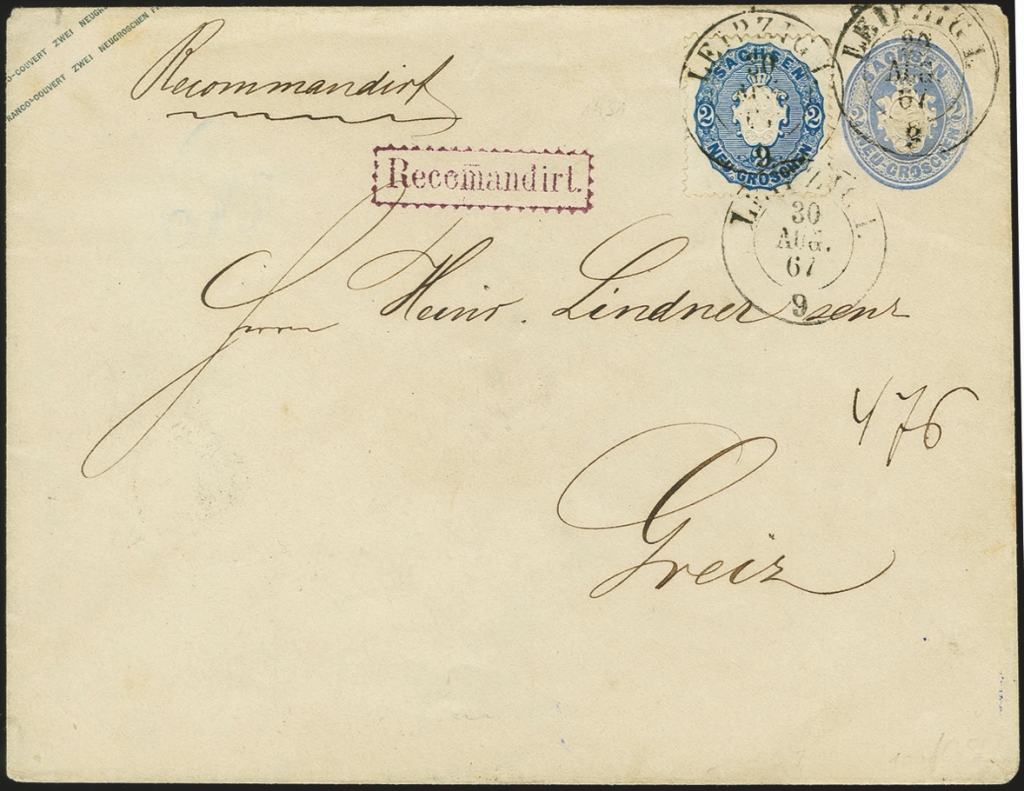 NCO-COUVERT ZWEI NEUGRO
RANCO-COUVERT ZWEI NEUGROSCHEN
Recommandirt
Recomandirt.
LEIPZIG I.
30
9
SACHSEN
2 2
NEU-GROSCHEN
LEIPZIG I.
AUG.
67
9
SACHSEN
2
NEU-GROSCHEN
LEIPZIG I.
30
AUG.
67
9
Herrn Heinr. Lindner senr
476
Greiz